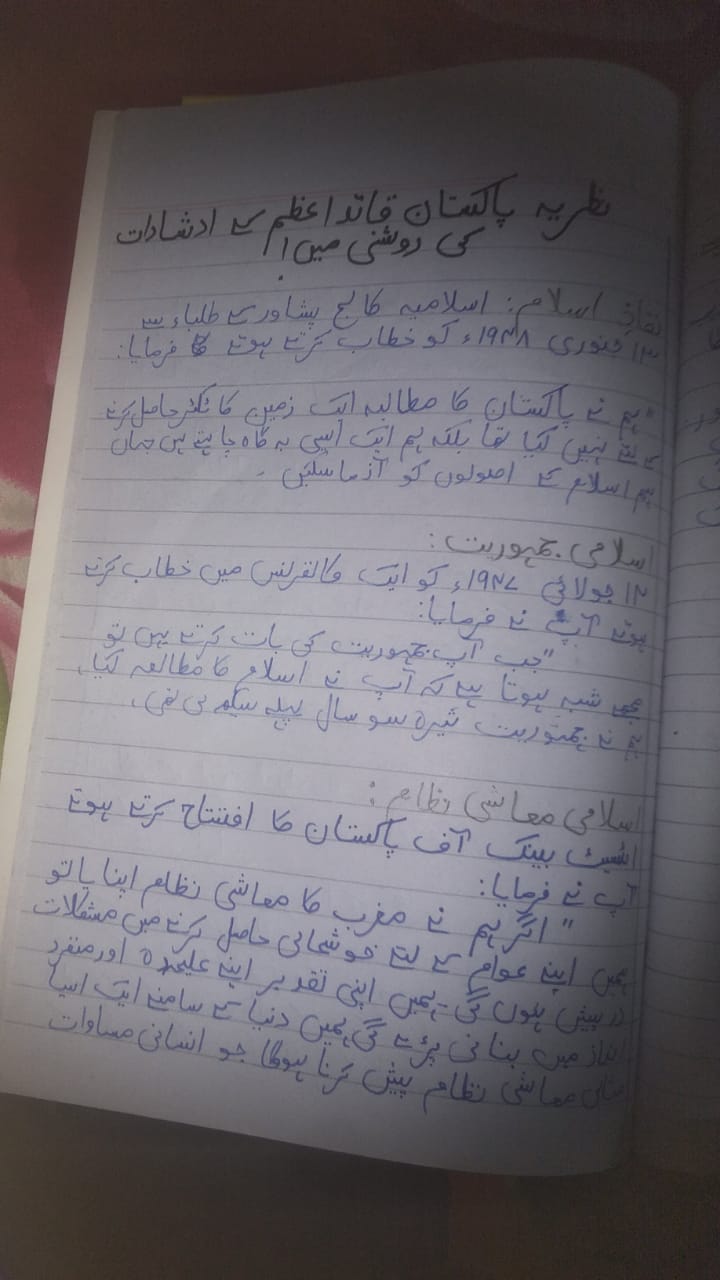 نظریہ پاکستان قائداعظم کے ارشادات
کی روشنی میں!
نفاذِ اسلام: اسلامیہ کالج پشاور کے طلباء سے
۱۳ جنوری ۱۹۴۸ء کو خطاب کرتے ہوئے فرمایا:
"ہم نے پاکستان کا مطالبہ ایک زمین کا ٹکڑا حاصل کرنے
کے لئے نہیں کیا تھا بلکہ ہم ایک ایسی گاہ چاہتے ہیں جہاں
ہم اسلام کے اصولوں کو آزما سکیں۔
اسلامی جمہوریت:
۱۴ جولائی ۱۹۴۷ء کو ایک کانفرنس میں خطاب کرتے
ہوئے آپ نے فرمایا:
"جب آپ جمہوریت کی بات کرتے ہیں تو
مجھے شبہ ہوتا ہے کہ آپ نے اسلام کا مطالعہ کیا۔
ہم نے جمہوریت تیرہ سو سال پہلے سیکھ لی تھی۔
اسلامی معاشی نظام:
اسٹیٹ بینک آف پاکستان کا افتتاح کرتے ہوئے
آپ نے فرمایا:
"اگر ہم نے مغرب کا معاشی نظام اپنایا تو
ہمیں اپنے عوام کے لئے خوشحالی حاصل کرنے میں مشکلات
درپیش ہوں گی۔ ہمیں اپنی تقدیر اپنے علیحدہ اور منفرد
انداز میں بنانی پڑے گی ہمیں دنیا کے سامنے ایک ایسا
مثالی معاشی نظام پیش کرنا ہوگا جو انسانی مساوات